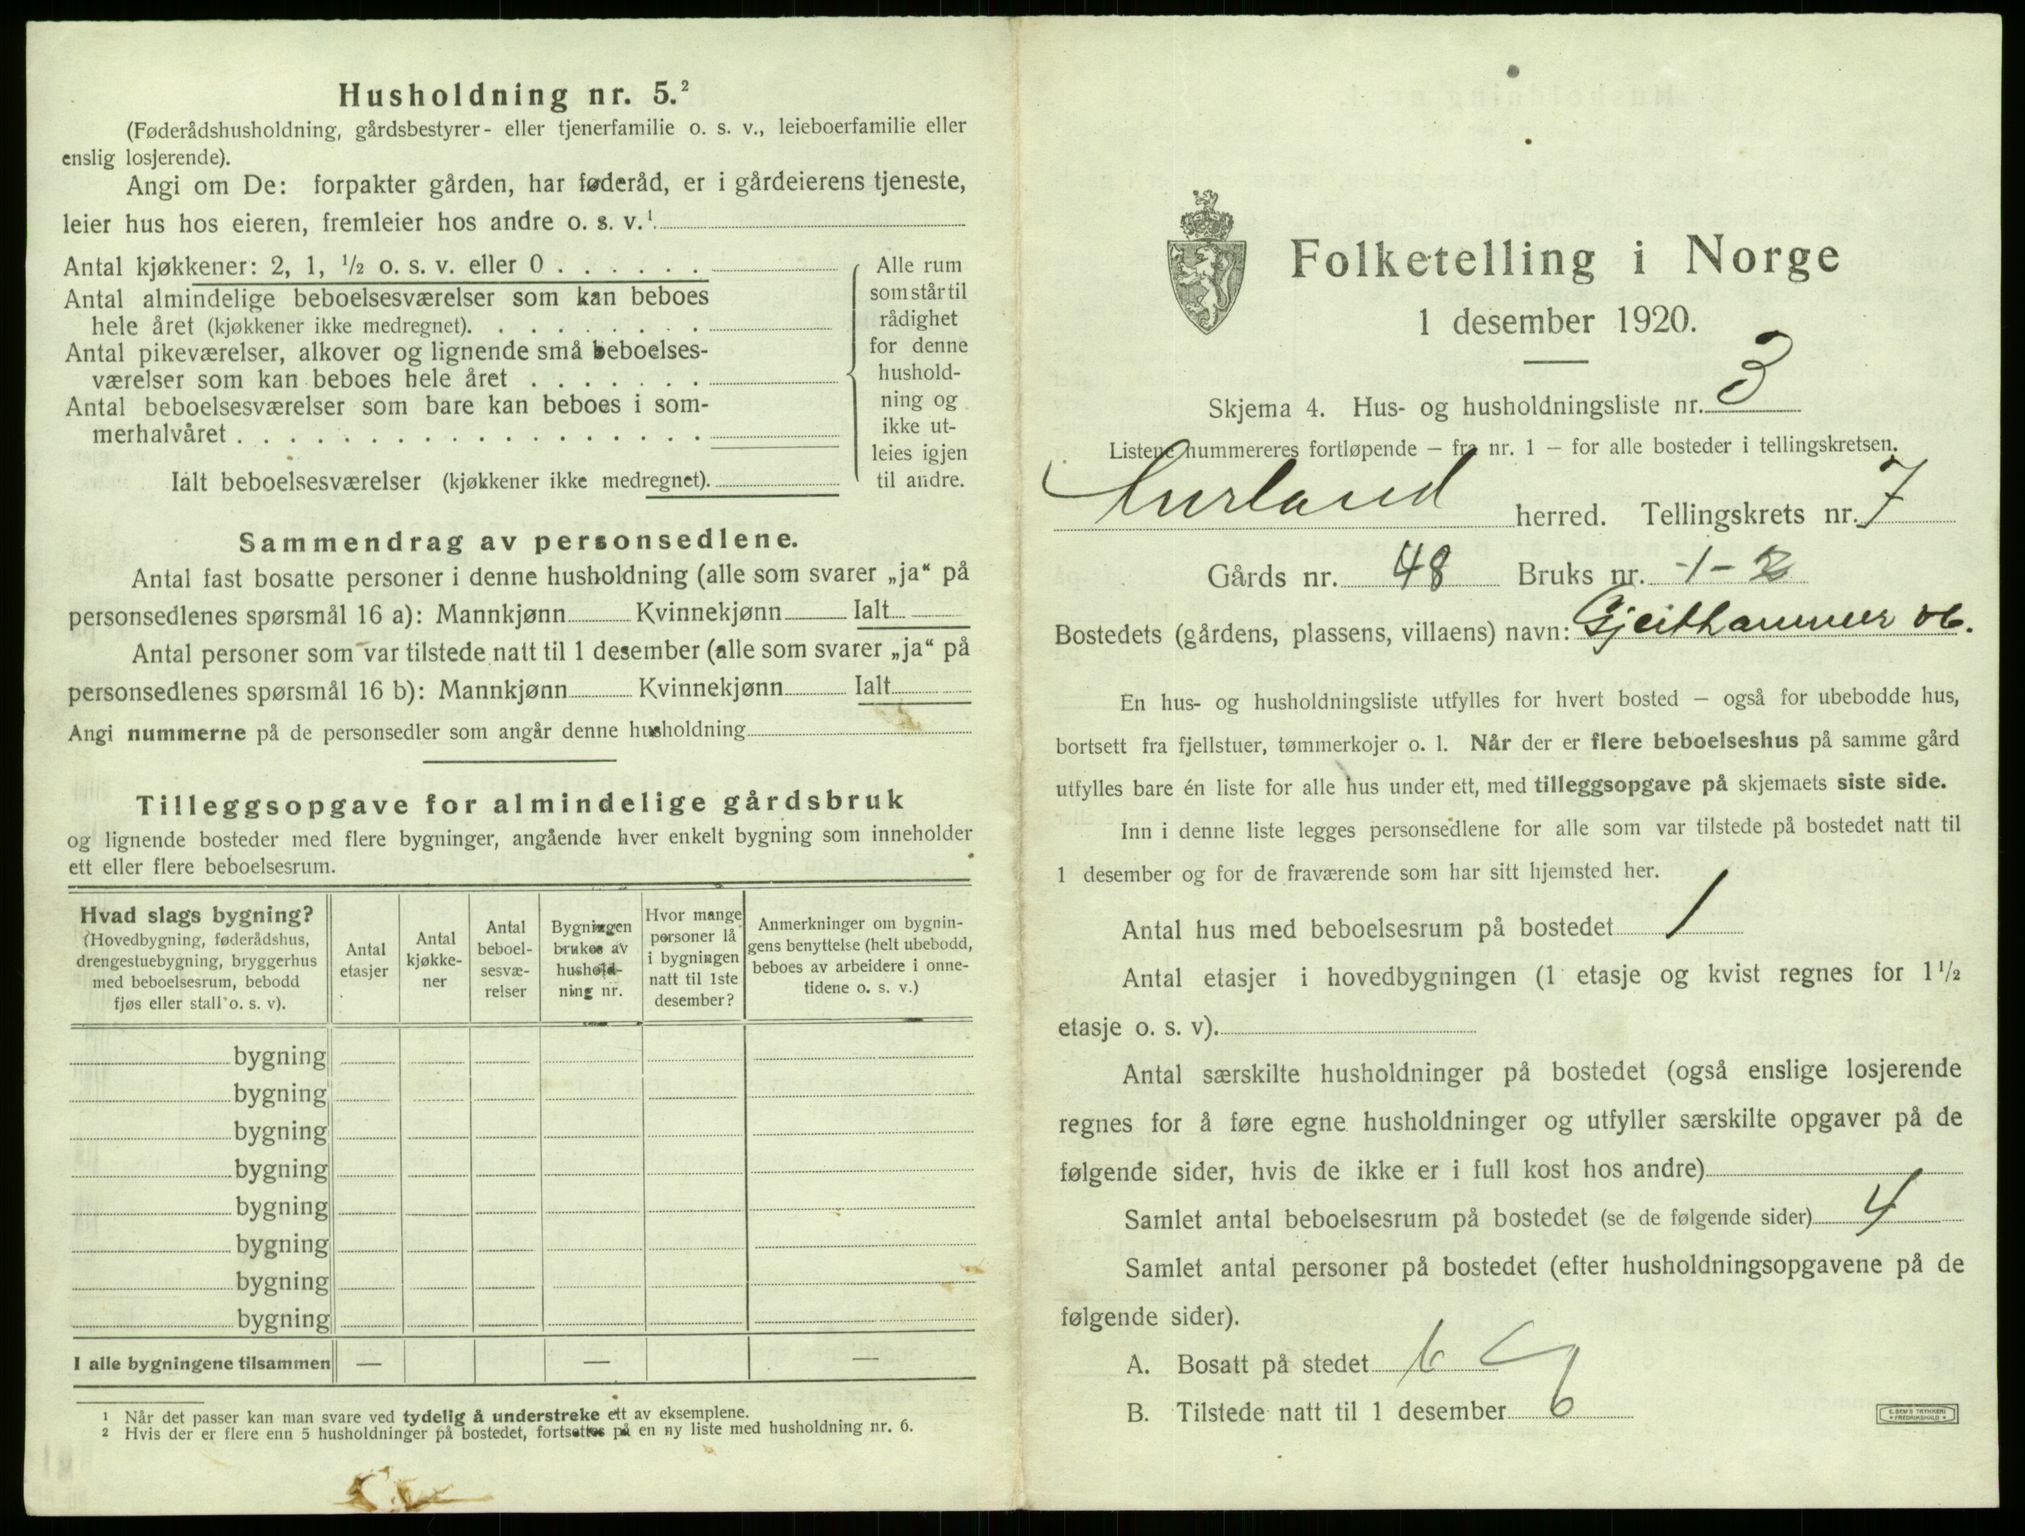 Husholdning nr. 5.²
(Føderådshusholdning, gårdsbestyrer- eller tjenerfamilie o. s. v., leieboerfamilie eller
enslig losjerende).
Angi om De: forpakter gården, har føderåd, er i gårdeierens tjeneste,
leier hus hos eieren, fremleier hos andre o. s. v.¹
Antal kjøkkener: 2, 1, ½ o. s. v. eller 0 . . . . . .
Antal almindelige beboelsesværelser som kan beboes
hele året (kjøkkener ikke medregnet). . . . . . . . .
Antal pikeværelser, alkover og lignende små beboelses-
værelser som kan beboes hele året . . . . . . .
Antal beboelsesværelser som bare kan beboes i som-
merhalvåret . . . . . . . . . . . . . . . . . .
Ialt beboelsesværelser (kjøkkener ikke medregnet).
Alle rum
som står til
rådighet
for denne
hushold-
ning og
ikke ut-
leies igjen
til andre.
Sammendrag av personsedlene.
Antal fast bosatte personer i denne husholdning (alle som svarer „ja“ på
personsedlenes spørsmål 16 a): Mannkjønn Kvinnekjønn Ialt
Antal personer som var tilstede natt til 1 desember (alle som svarer „ja“ på
personsedlenes spørsmål 16 b): Mannkjønn Kvinnekjønn Ialt
Angi nummerne på de personsedler som angår denne husholdning
Tilleggsopgave for almindelige gårdsbruk
og lignende bosteder med flere bygninger, angående hver enkelt bygning som inneholder
ett eller flere beboelsesrum.
Hvad slags bygning?
(Hovedbygning, føderådshus,
drengestuebygning, bryggerhus
med beboelsesrum, bebodd
fjøs eller stall o. s. v).
Antal
etasjer
Antal
kjøkke-
ner
Antal
beboel-
sesvæ-
relser
Bygningen
brukes av
hushold-
ning nr.
Hvor mange
personer lå
i bygningen
natt til 1ste
desember?
Anmerkninger om bygnin-
gens benyttelse (helt ubebodd,
beboes av arbeidere i onne-
tidene o. s. v.)
bygning
bygning
bygning
bygning
bygning
bygning
bygning
bygning
I alle bygningene tilsammen — — —
¹ Når det passer kan man svare ved tydelig å understreke ett av eksemplene.
² Hvis der er flere enn 5 husholdninger på bostedet, fortsettes på en ny liste med husholdning nr. 6.
Folketelling i Norge
1 desember 1920.
Skjema 4. Hus- og husholdningsliste nr. 3
Listene nummereres fortløpende – fra nr. 1 – for alle bosteder i tellingskretsen.
Aurland herred. Tellingskrets nr. 7
Gårds nr. 48 Bruks nr. -1-2
Bostedets (gårdens, plassens, villaens) navn: Gjeithammer
En hus- og husholdningsliste utfylles for hvert bosted – også for ubebodde hus,
bortsett fra fjellstuer, tømmerkojer o. l. Når der er flere beboelseshus på samme gård
utfylles bare én liste for alle hus under ett, med tilleggsopgave på skjemaets siste side.
Inn i denne liste legges personsedlene for alle som var tilstede på bostedet natt til
1 desember og for de fraværende som har sitt hjemsted her.
Antal hus med beboelsesrum på bostedet 1
Antal etasjer i hovedbygningen (1 etasje og kvist regnes for 1½
etasje o. s. v).
Antal særskilte husholdninger på bostedet (også enslige losjerende
regnes for å føre egne husholdninger og utfyller særskilte opgaver på de
følgende sider, hvis de ikke er i full kost hos andre)
Samlet antal beboelsesrum på bostedet (se de følgende sider) 4
Samlet antal personer på bostedet (efter husholdningsopgavene på de
følgende sider).
A. Bosatt på stedet 6
B. Tilstede natt til 1 desember 6
E. SEM'S TRYKKERI
FREDRIKSHALD